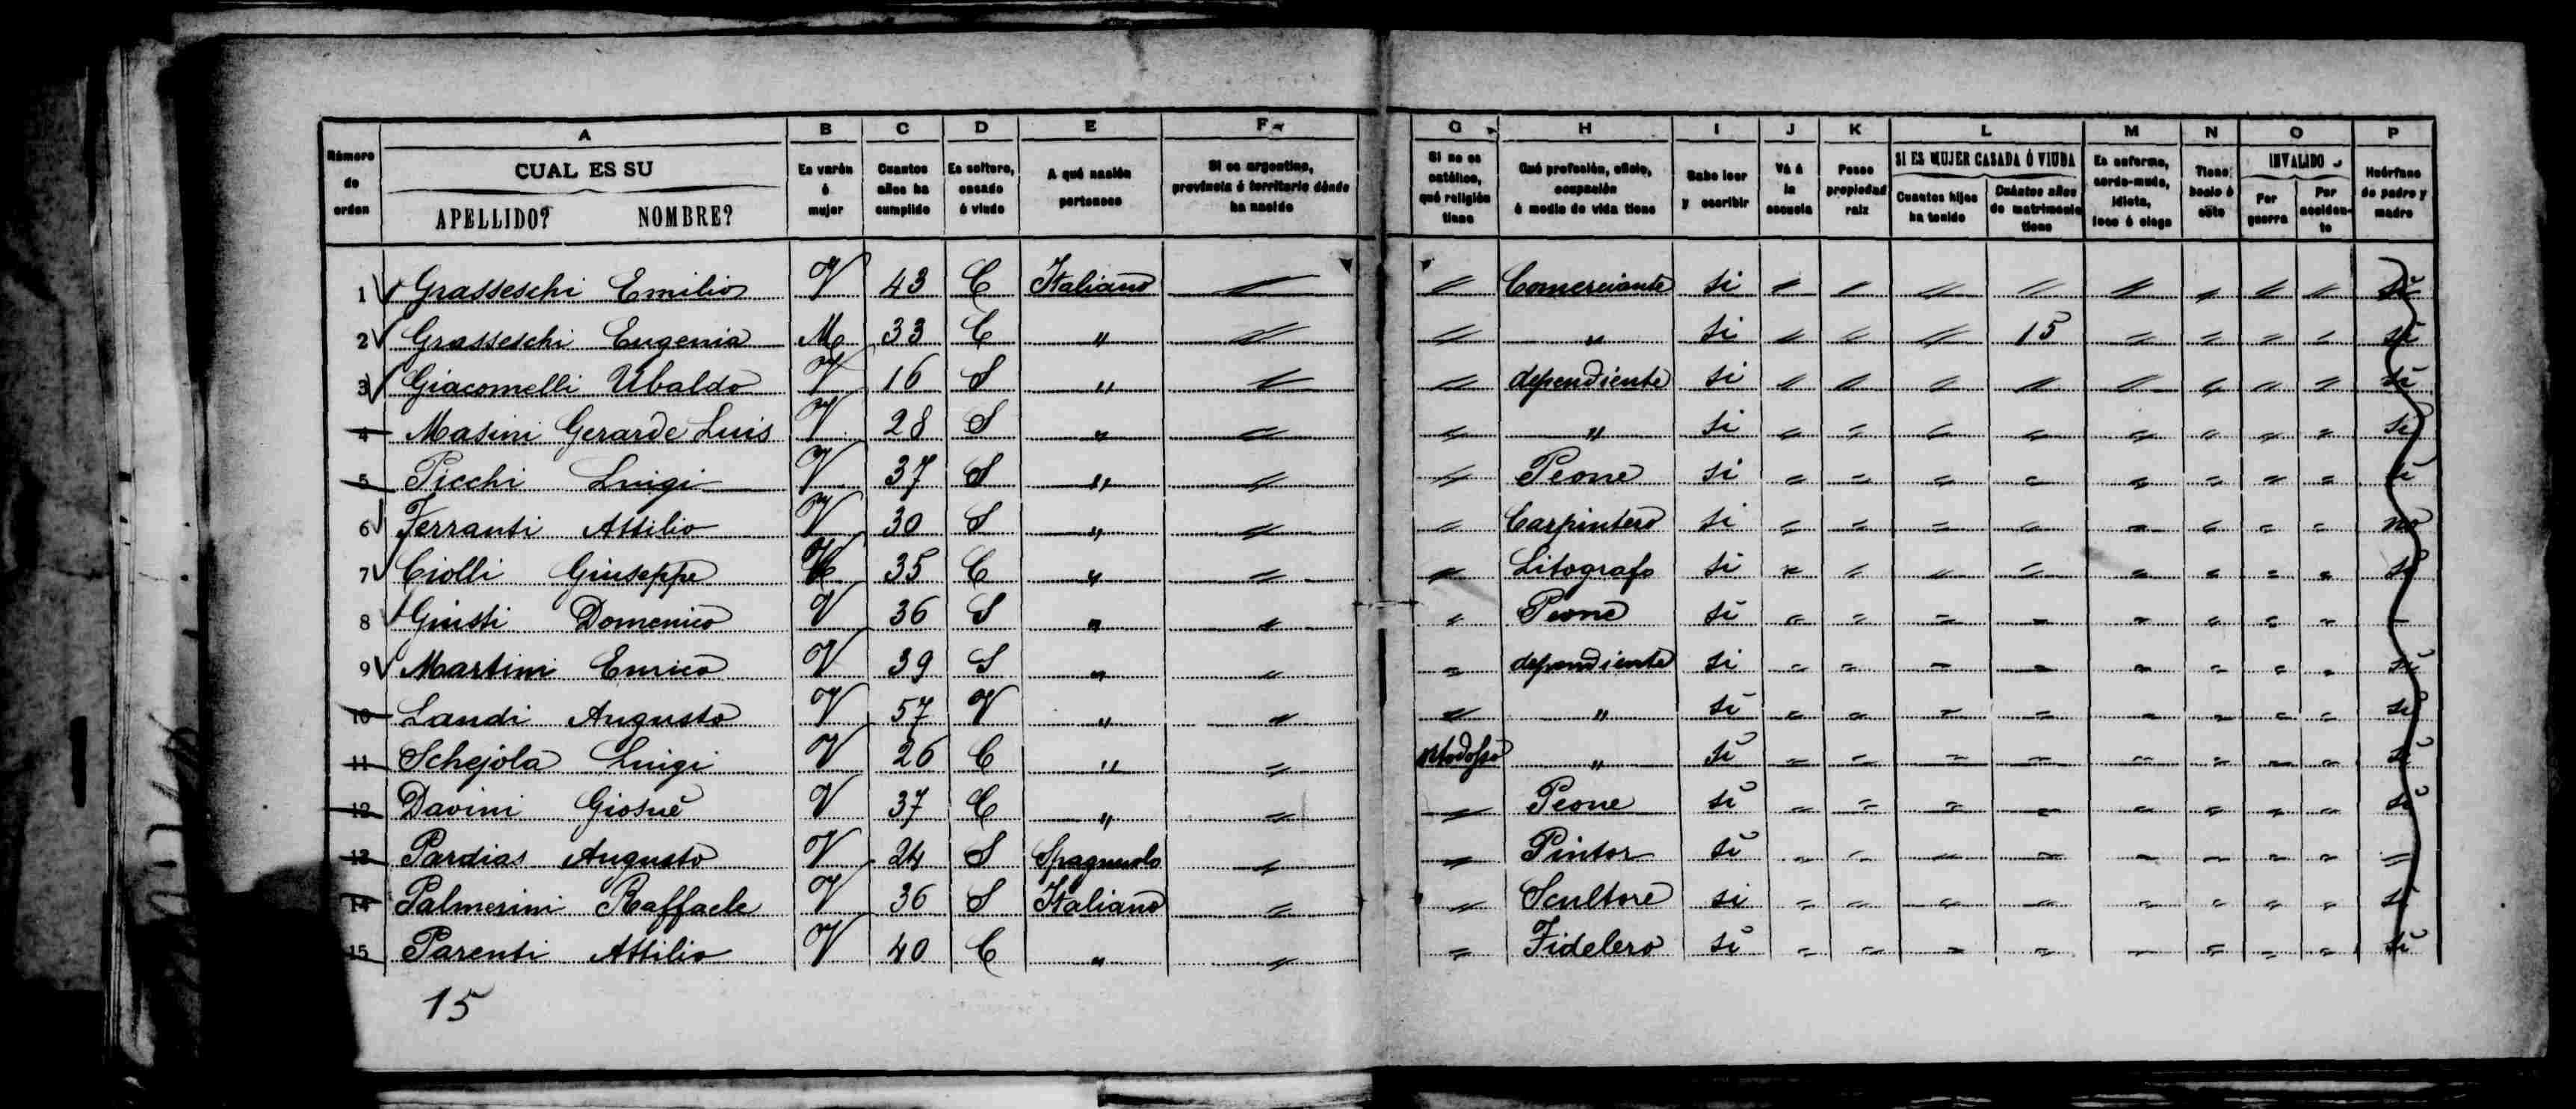 A B C D E F G H I J K L M N O P
Número de orden
CUAL ES SU
APELLIDO? NOMBRE?
Es varón ó mujer
Cuantos años ha cumplido
Es soltero, casado ó viudo
A qué nación pertenece
Si es argentino, provincia ó territorio dónde ha nacido
Si no es católico, qué religión tiene
Qué profesión, oficio, ocupación ó medio de vida tiene
Sabe leer y escribir
Vá á la escuela
Posee propiedad raiz
SI ES MUJER CASADA Ó VIUDA
Cuantos hijos ha tenido
Cuántos años de matrimonio tiene
Es enfermo, sordo-mudo, idiota, loco ó ciego
Tiene bocio ó coto
INVALIDO
Por guerra
Por acciden-te
Huérfano de padre y madre
1 Grasseschi Emilio V 43 C Italiano " " Comerciante si " " " " " " " " si
2 Grasseschi Eugenia M 33 C " " " " si " " " 15 " " " " si
3 Giacomelli Ubaldo V 16 S " " " dependiente si " " " " " " " " si
4 Masini Gerarde Luis V 28 S " " " " si " " " " " " " " si
5 Picchi Luigi V 37 S " " " Peone si " " " " " " " " si
6 Ferranti Attilio V 30 S " " " Carpintero si " " " " " " " " no
7 Ciolli Giuseppe V 35 C " " " Litografo si " " " " " " " " si
8 Giusti Domenico V 36 S " " " Peone si " " " " " " " " –
9 Martini Enrico V 39 S " " " dependiente si " " " " " " " " si
10 Landi Augusto V 57 V " " " " si " " " " " " " " si
11 Schejola Luigi V 26 C " " ortodosso " si " " " " " " " " si
12 Davini Giosuè V 37 C " " " Peone si " " " " " " " " si
13 Pardias Augusto V 24 S Spagnuolo " " Pintor si " " " " " " " " "
14 Palmerini Raffaele V 36 S Italiano " " Scultore si " " " " " " " " si
15 Parenti Attilio V 40 C " " " Fidelero si " " " " " " " " si
15